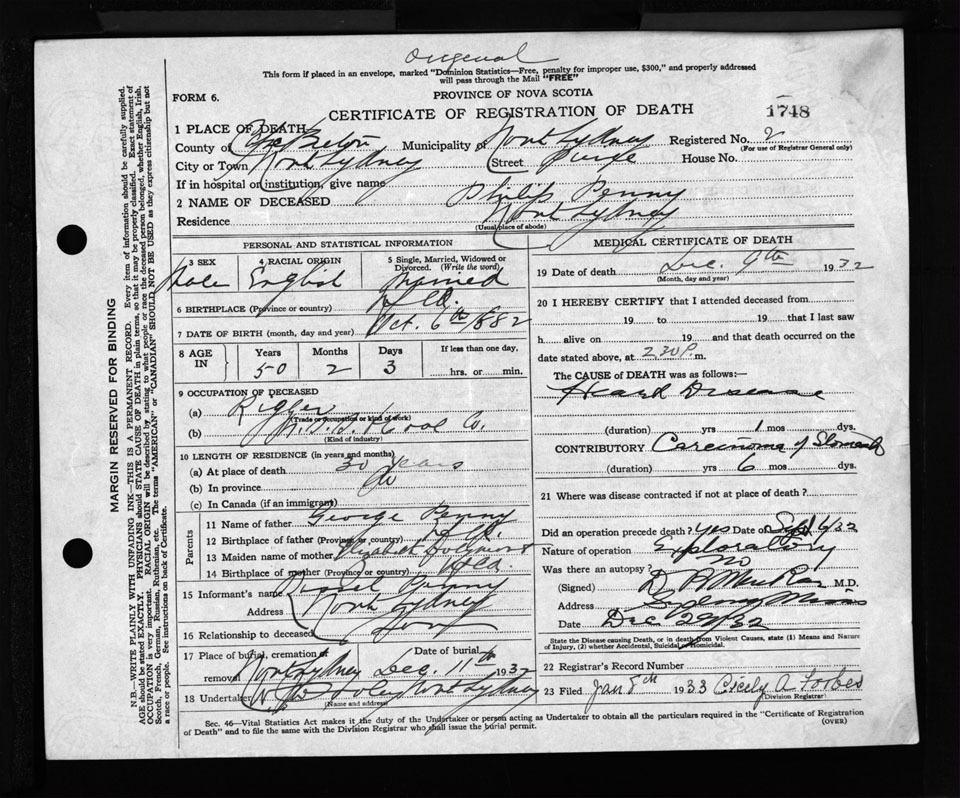 Original
This form if placed in an envelope, marked "Dominion Statistics—Free, penalty for improper use, $300," and properly addressed
will pass through the Mail "FREE"
FORM 6.
PROVINCE OF NOVA SCOTIA
CERTIFICATE OF REGISTRATION OF DEATH
1748
1 PLACE OF DEATH
County of Cape Breton Municipality of North Sydney Registered No. 2
(For use of Registrar General only)
City or Town North Sydney Street Pierce House No.
If in hospital or institution, give name
2 NAME OF DECEASED Philip Penny
Residence North Sydney
(Usual place of abode)
PERSONAL AND STATISTICAL INFORMATION
3 SEX 4 RACIAL ORIGIN 5 Single, Married, Widowed or Divorced. (Write the word)
Male English Married
6 BIRTHPLACE (Province or country) Nfld.
7 DATE OF BIRTH (month, day and year) Oct. 6th 1882
8 AGE IN Years Months Days If less than one day,
50 2 3 hrs. or min.
9 OCCUPATION OF DECEASED
(a) Rigger
(Trade occupation or kind of work)
(b) Coal Co.
(Kind of industry)
10 LENGTH OF RESIDENCE (in years and months)
(a) At place of death 30 years
(b) In province do
(c) In Canada (if an immigrant)
Parents
11 Name of father George Penny
12 Birthplace of father (Province or country) Nfld.
13 Maiden name of mother Elizabeth
14 Birthplace of mother (Province or country) Nfld.
15 Informant's name Penny
Address North Sydney
16 Relationship to deceased Son
17 Place of burial, cremation or removal Date of burial
North Sydney Dec. 11th 1932
18 Undertaker North Sydney
(Name and address)
MEDICAL CERTIFICATE OF DEATH
19 Date of death Dec. 9th 1932
(Month, day and year)
20 I HEREBY CERTIFY that I attended deceased from
19 to 19 that I last saw
h alive on 19 and that death occurred on the
date stated above, at 2.30 P. m.
The CAUSE OF DEATH was as follows:—
Heart Disease
(duration) yrs 1 mos dys.
CONTRIBUTORY Carcinoma of Stomach
(duration) yrs 6 mos dys.
21 Where was disease contracted if not at place of death?
Did an operation precede death? yes Date of Sept 6/32
Nature of operation Exploratory
Was there an autopsy? no
(Signed) D. R. MacRae M.D.
Address Sydney Mines
Date Dec 29/32
State the Disease causing Death, or in death from Violent Causes, state (1) Means and Nature
of Injury, (2) whether Accidental, Suicidal or Homicidal.
22 Registrar's Record Number
23 Filed Jan 5th 1933 Cicely A Forbes
Division Registrar
Sec. 46—Vital Statistics Act makes it the duty of the Undertaker or person acting as Undertaker to obtain all the particulars required in the "Certificate of Registration
of Death" and to file the same with the Division Registrar who shall issue the burial permit.
(OVER)
MARGIN RESERVED FOR BINDING
N.B.—WRITE PLAINLY WITH UNFADING INK—THIS IS A PERMANENT RECORD. Every item of information should be carefully supplied.
AGE should be stated EXACTLY. PHYSICIANS should STATE CAUSE OF DEATH in plain terms, so that it may be properly classified. Exact statement of
OCCUPATION is very important. RACIAL ORIGIN will be described by stating to what people or race the deceased person belonged, whether English, Irish,
Scotch, French, German, Russian, Ruthenian, etc. The terms "AMERICAN" or "CANADIAN" SHOULD NOT BE USED as they express citizenship but not
a race or people. See instructions on back of Certificate.